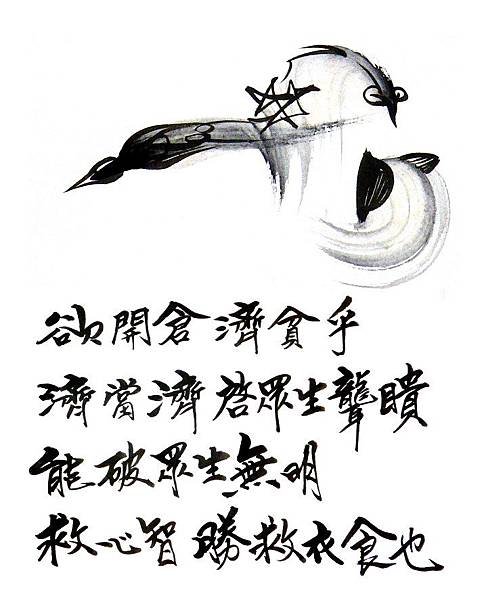 欲開倉濟貧乎
濟當濟啓眾生聾聵
能破眾生無明
救心智勝救衣食也